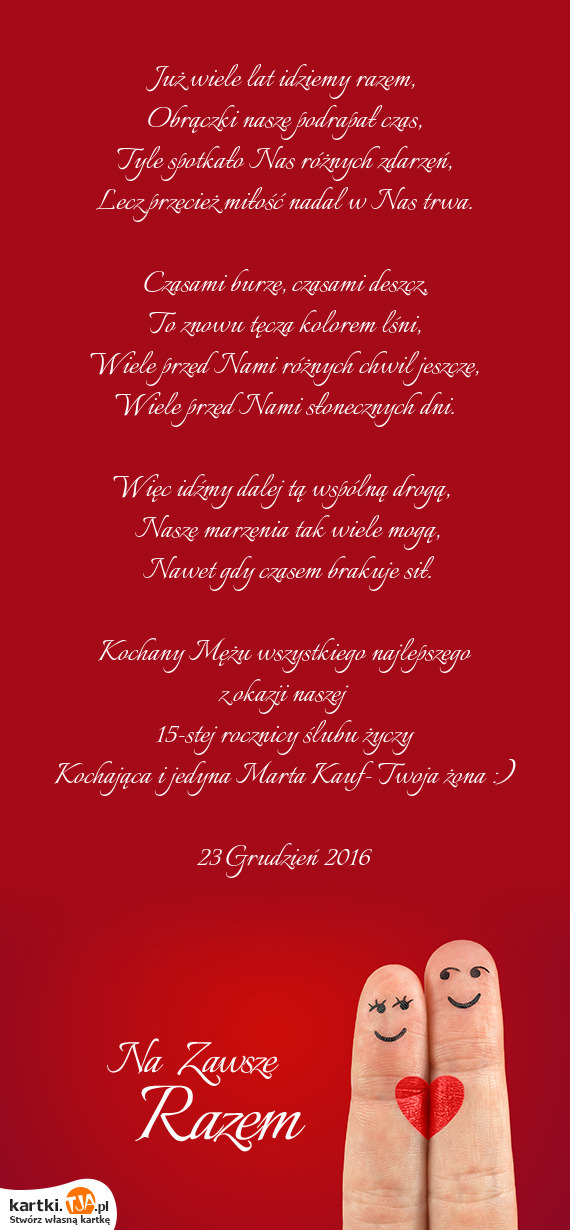 Już wiele lat idziemy razem,
Obrączki nasze podrapał czas,
Tyle spotkało Nas różnych zdarzeń,
Lecz przecież miłość nadal w Nas trwa.
Czasami burze, czasami deszcz,
To znowu tęczą kolorem lśni,
Wiele przed Nami różnych chwil jeszcze,
Wiele przed Nami słonecznych dni.
Więc idźmy dalej tą wspólną drogą,
Nasze marzenia tak wiele mogą,
Nawet gdy czasem brakuje sił.
Kochany Mężu wszystkiego najlepszego
z okazji naszej
15-stej rocznicy ślubu życzy
Kochająca i jedyna Marta Kauf- Twoja żona :)
23 Grudzień 2016
Na Zawsze
Razem
kartki.TJA.pl
Stwórz własną kartkę